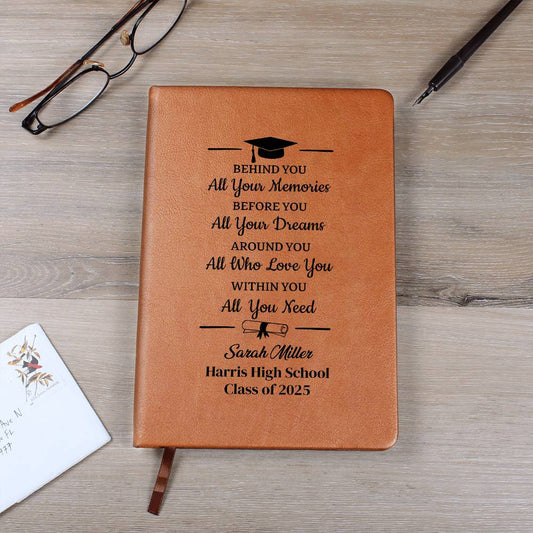 BEHIND YOU
All Your Memories
BEFORE YOU
All Your Dreams
AROUND YOU
All Who Love You
WITHIN YOU
All You Need
Sarah Miller
Harris High School
Class of 2025
Ave N
FL